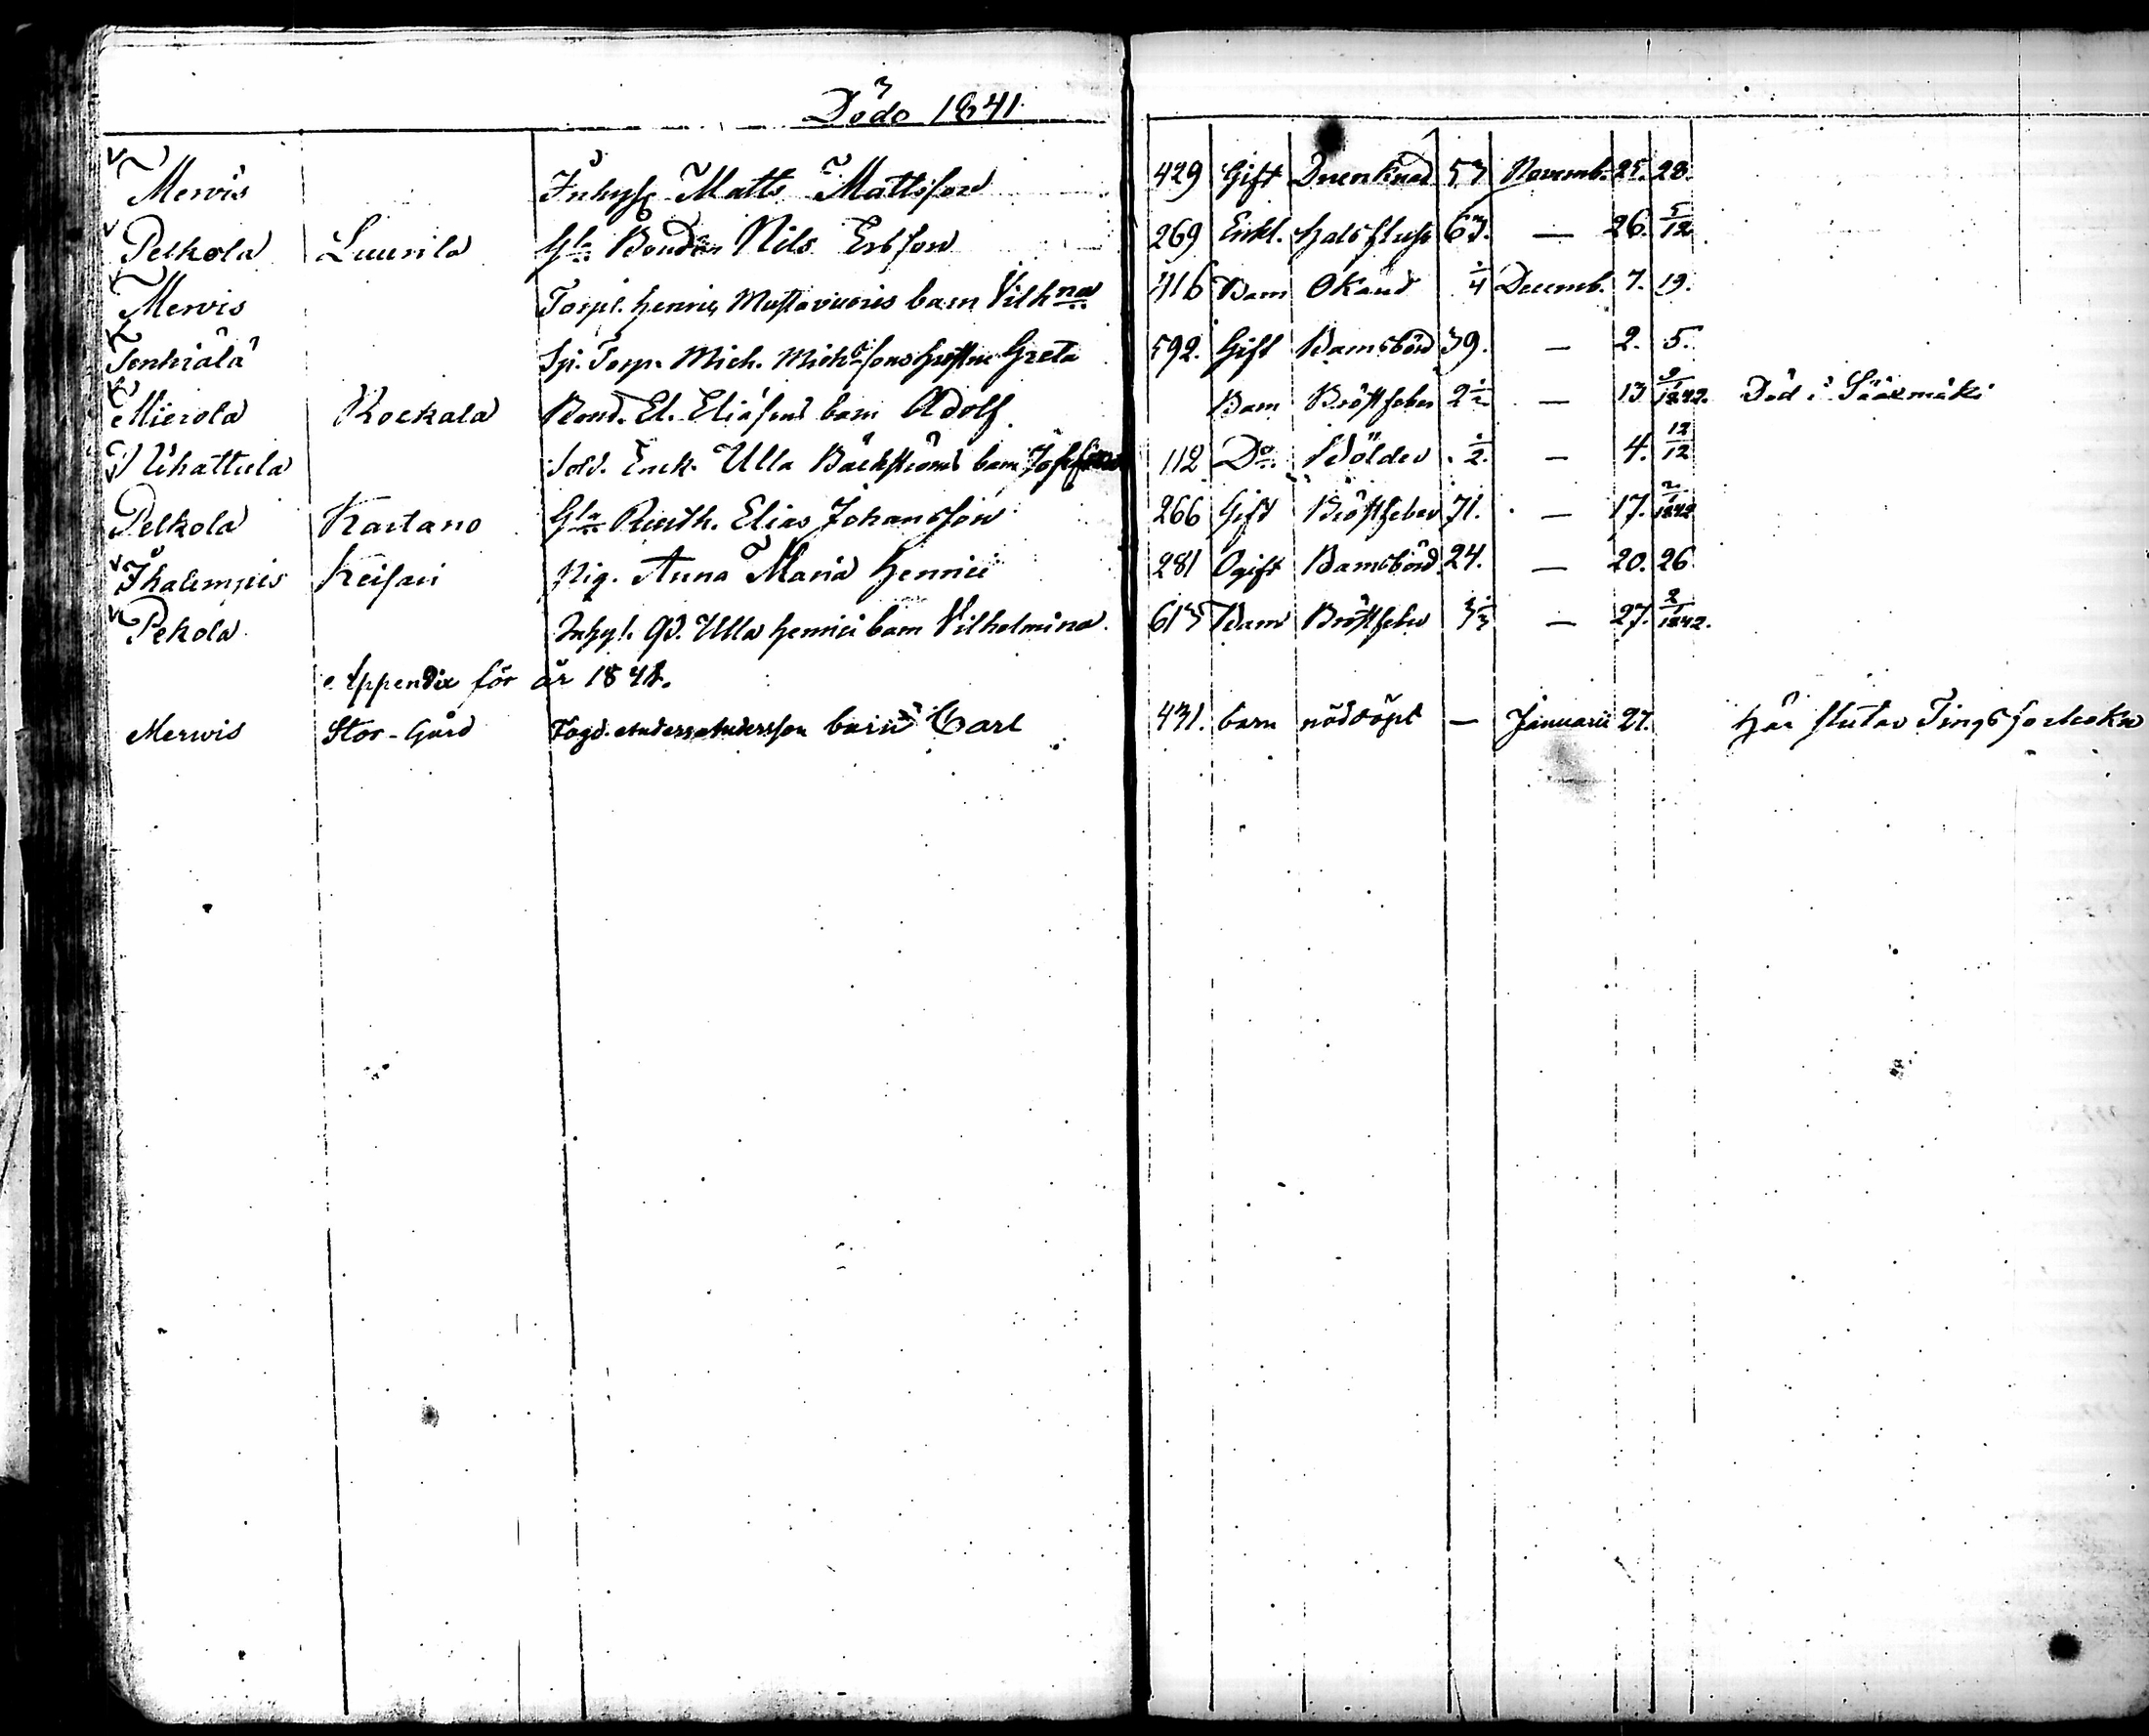 Döde 1841
Mervis Inhys Matts Mattsson 429 Gift Drunknad 57 Novemb. 25. 28.
Pelkola Luurila Gla Bonden Nils Ersson 269 Enkl. Halsfluss 63. — 26. 5/12
Mervis Torp. Henric barn Vilhna 416 Barn Okänd 1/4 Decemb. 7. 19.
Tenhiälä Torp. Mich. Michssons hustru Greta 592. Gift Barnsbörd 39. — 2. 5.
Mierola Rockala Bond. El. Eliæsons barn Adolf Barn Bröstfeber 2 1/2 — 13 1842. Död i Sääxmäki
Uhattula Sold. Enck. Ulla Bäckströms barn 112 Do. Bölder 1/2. — 4. 12/12
Pelkola Kartano Gla Rusth. Elias Johansson 266 Gift Bröstfeber 71. — 17. 2/1 1842
Ihalempis Keisari Pig. Anna Maria Henrici 281 Ogift Barnsbörd 24. — 20. 26.
Pekola Inhys. Qv. Ulla Henrici barn Vilhelmina. 613 Barn Bröstfeber — 27. 2/1 1842.
Appendix för år 1841.
Merwis Stor-Gård Anders Andersson barn Carl 431. barn nöddöpt — Januarii 27. Här slutar